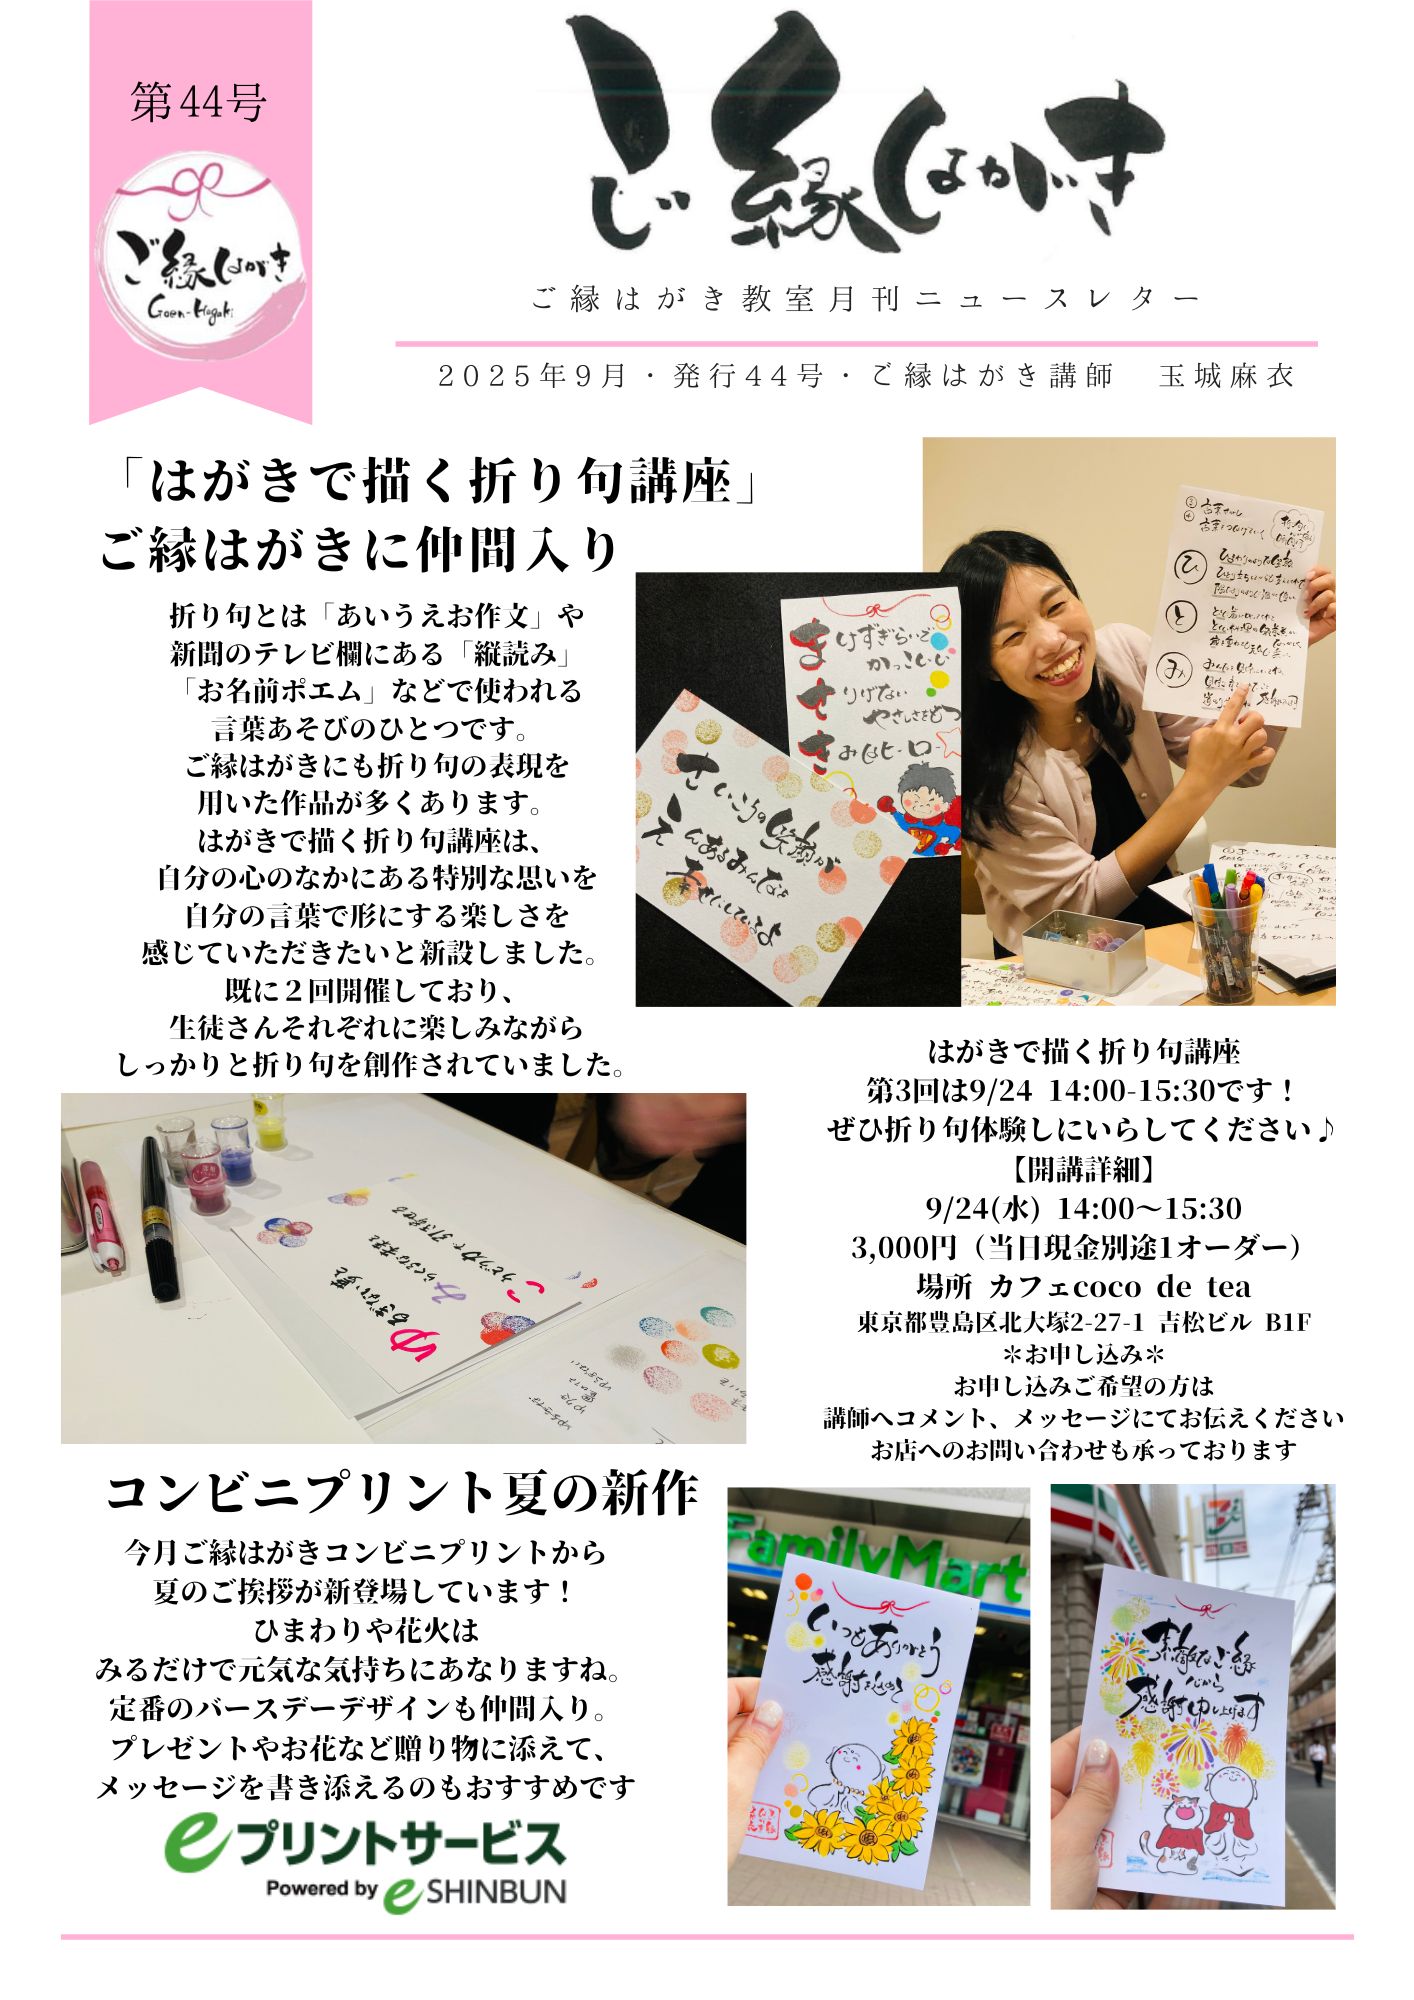 第44号
ご縁はがき
Goen-Hagaki
ご縁はがき
ご縁はがき教室月刊ニュースレター
2025年9月・発行44号・ご縁はがき講師　玉城麻衣
「はがきで描く折り句講座」
ご縁はがきに仲間入り
折り句とは「あいうえお作文」や
新聞のテレビ欄にある「縦読み」
「お名前ポエム」などで使われる
言葉あそびのひとつです。
ご縁はがきにも折り句の表現を
用いた作品が多くあります。
はがきで描く折り句講座は、
自分の心のなかにある特別な思いを
自分の言葉で形にする楽しさを
感じていただきたいと新設しました。
既に２回開催しており、
生徒さんそれぞれに楽しみながら
しっかりと折り句を創作されていました。
まけずぎらいで
かっこいい
せ
りげない
やさしさをもつ
きみはヒーロー
さいころの笑顔が
えんあるみんなを
幸せにしているよ
ひ
と
み
はがきで描く折り句講座
第3回は9/24 14:00-15:30です！
ぜひ折り句体験しにいらしてください♪
【開講詳細】
9/24(水) 14:00〜15:30
3,000円（当日現金別途1オーダー）
場所 カフェcoco de tea
東京都豊島区北大塚2-27-1 吉松ビル B1F
＊お申し込み＊
お申し込みご希望の方は
講師へコメント、メッセージにてお伝えください
お店へのお問い合わせも承っております
ゆるぎない愛と
み
こ
コンビニプリント夏の新作
今月ご縁はがきコンビニプリントから
夏のご挨拶が新登場しています！
ひまわりや花火は
みるだけで元気な気持ちにあなりますね。
定番のバースデーデザインも仲間入り。
プレゼントやお花など贈り物に添えて、
メッセージを書き添えるのもおすすめです
eプリントサービス
Powered by eSHINBUN
FamilyMart
いつもありがとう
感謝を込めて
素敵なご縁
心から
感謝申し上げます